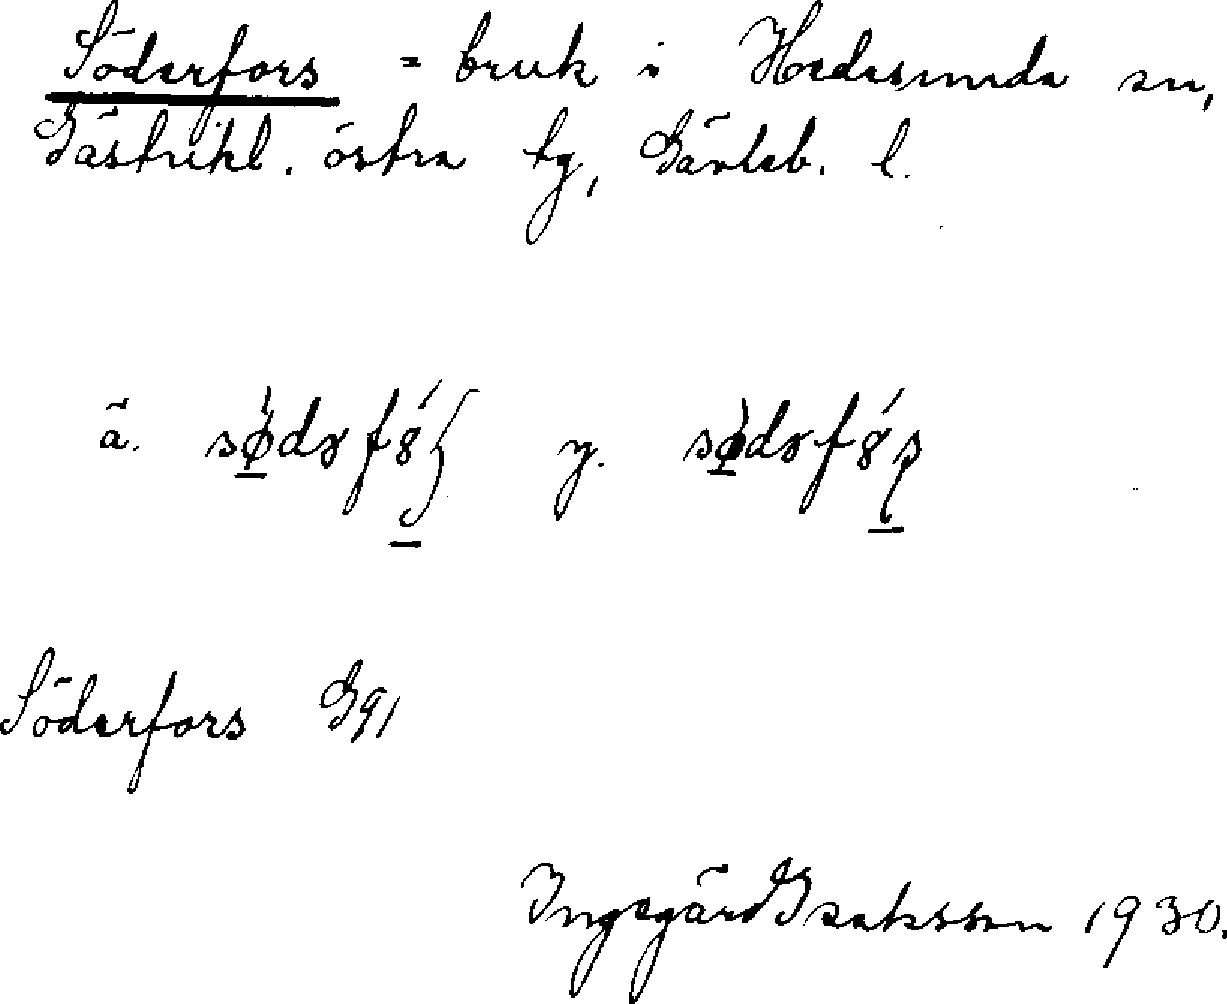 Söderfors = bruk i Hedesunda sn,
Gästrikl. östra tg, Gävleb. l.
ä. y.
Söderfors G91
Ingegärd Isaksson 1930.